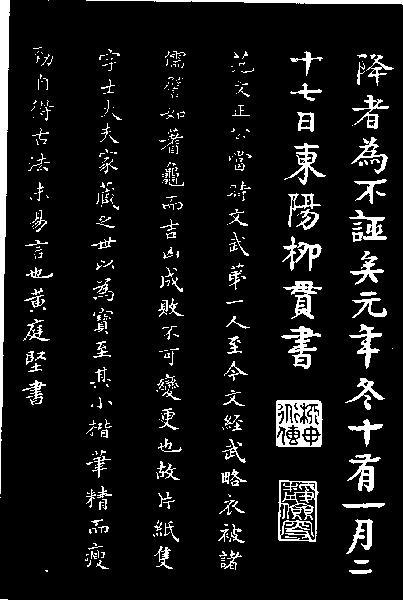 降者為不誣矣元年冬十有一月二
十七日東陽柳貫書
范文正公當時文武第一人至今文經武略衣被諸
儒譬如蓍龜而吉凶成敗不可變更也故片紙隻
字士大夫家藏之世以為寶至其小楷筆精而瘦
勁自得古法未易言也黃庭堅書